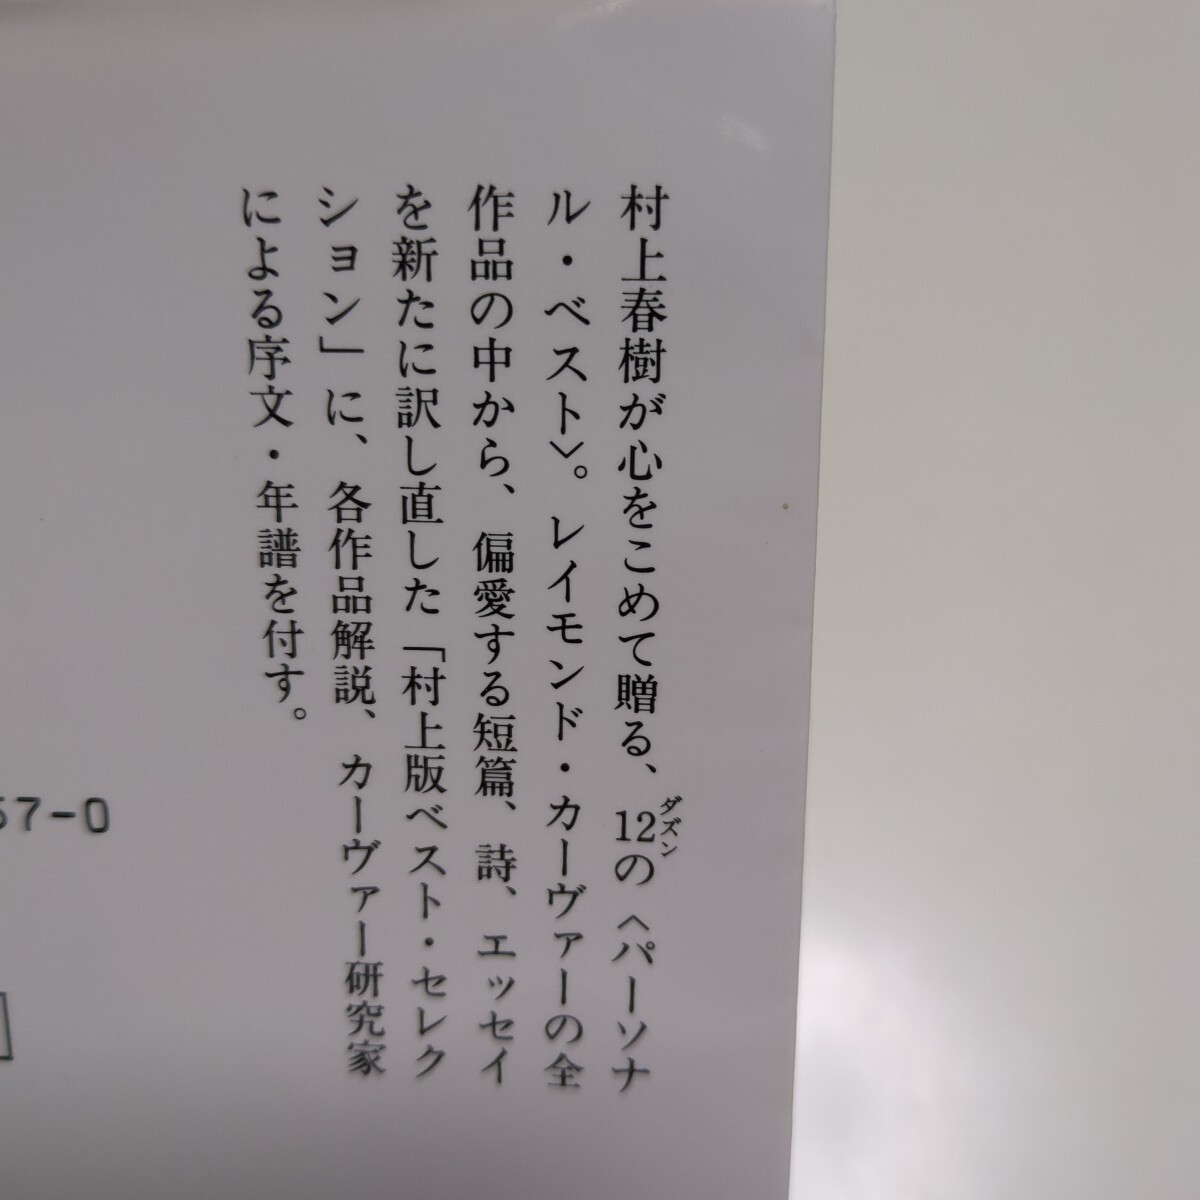 村上春樹が心をこめて贈る、12の〈パーソナ
ダズン
ル・ベスト〉。レイモンド・カーヴァーの全
作品の中から、偏愛する短篇、詩、エッセイ
を新たに訳し直した「村上版ベスト・セレク
ション」に、各作品解説、カーヴァー研究家
による序文・年譜を付す。
57-0